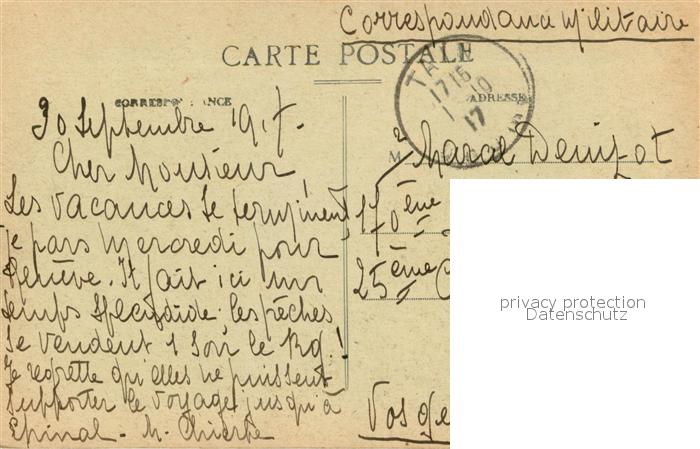 Correspondance Militaire
CARTE POSTALE
CORRESPONDANCE
ADRESSE
1715
10
17
30 Septembre 1917.
Cher Monsieur
Les vacances se terminent,
je pars mercredi pour
Genève. Il fait ici un
temps splendide: les pêches
se vendent 1 sou le Kg!
Je regrette qu'elles ne puissent
supporter le voyage jusqu'à
Epinal. M.
M Marcel Denizot
170ème
25ème C
Vosge
privacy protection
Datenschutz